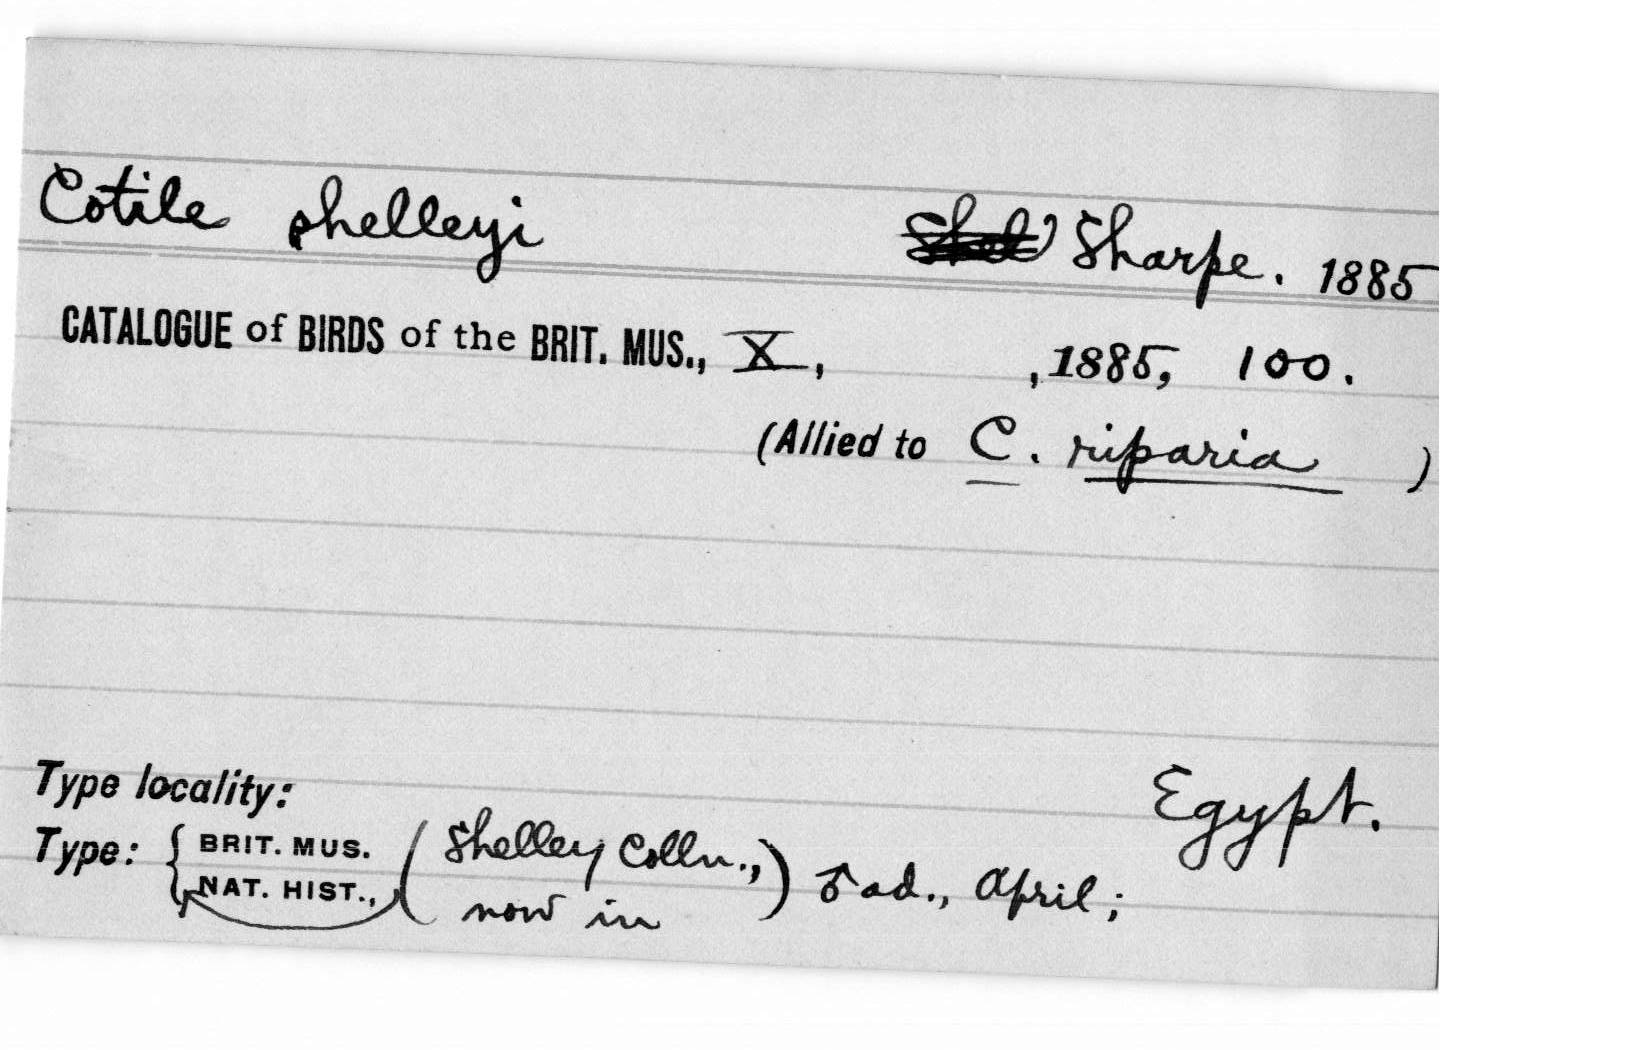 Cotile shelleyi Shel Sharpe. 1885
CATALOGUE of BIRDS of the BRIT. MUS., X, , 1885, 100.
(Allied to C. riparia )
Type locality: Egypt.
Type: { BRIT. MUS. NAT. HIST., (Shelley Colln., now in) ♂ ad., April;